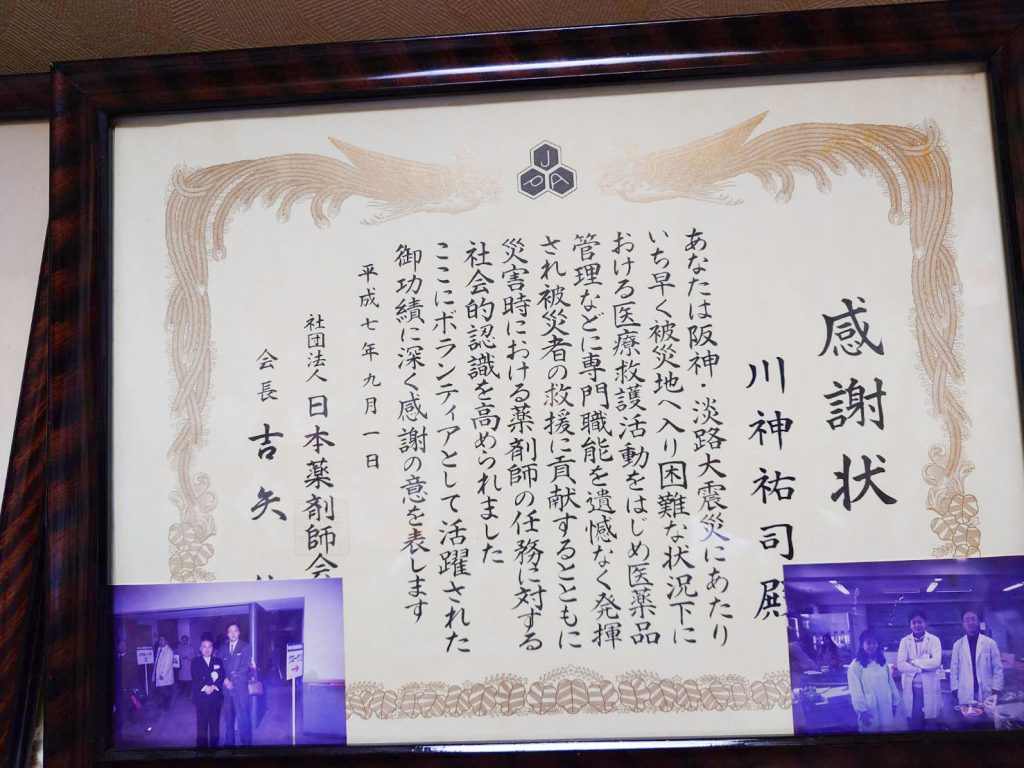 感謝状
川神祐司殿
あなたは阪神・淡路大震災にあたり
いち早く被災地へ入り困難な状況下に
おける医療救護活動をはじめ医薬品
管理などに専門職能を遺憾なく発揮
され被災者の救援に貢献するとともに
災害時における薬剤師の任務に対する
社会的認識を高められました
ここにボランティアとして活躍された
御功績に深く感謝の意を表します
平成七年九月一日
社団法人日本薬剤師会
会長 吉矢
JPA
クローク